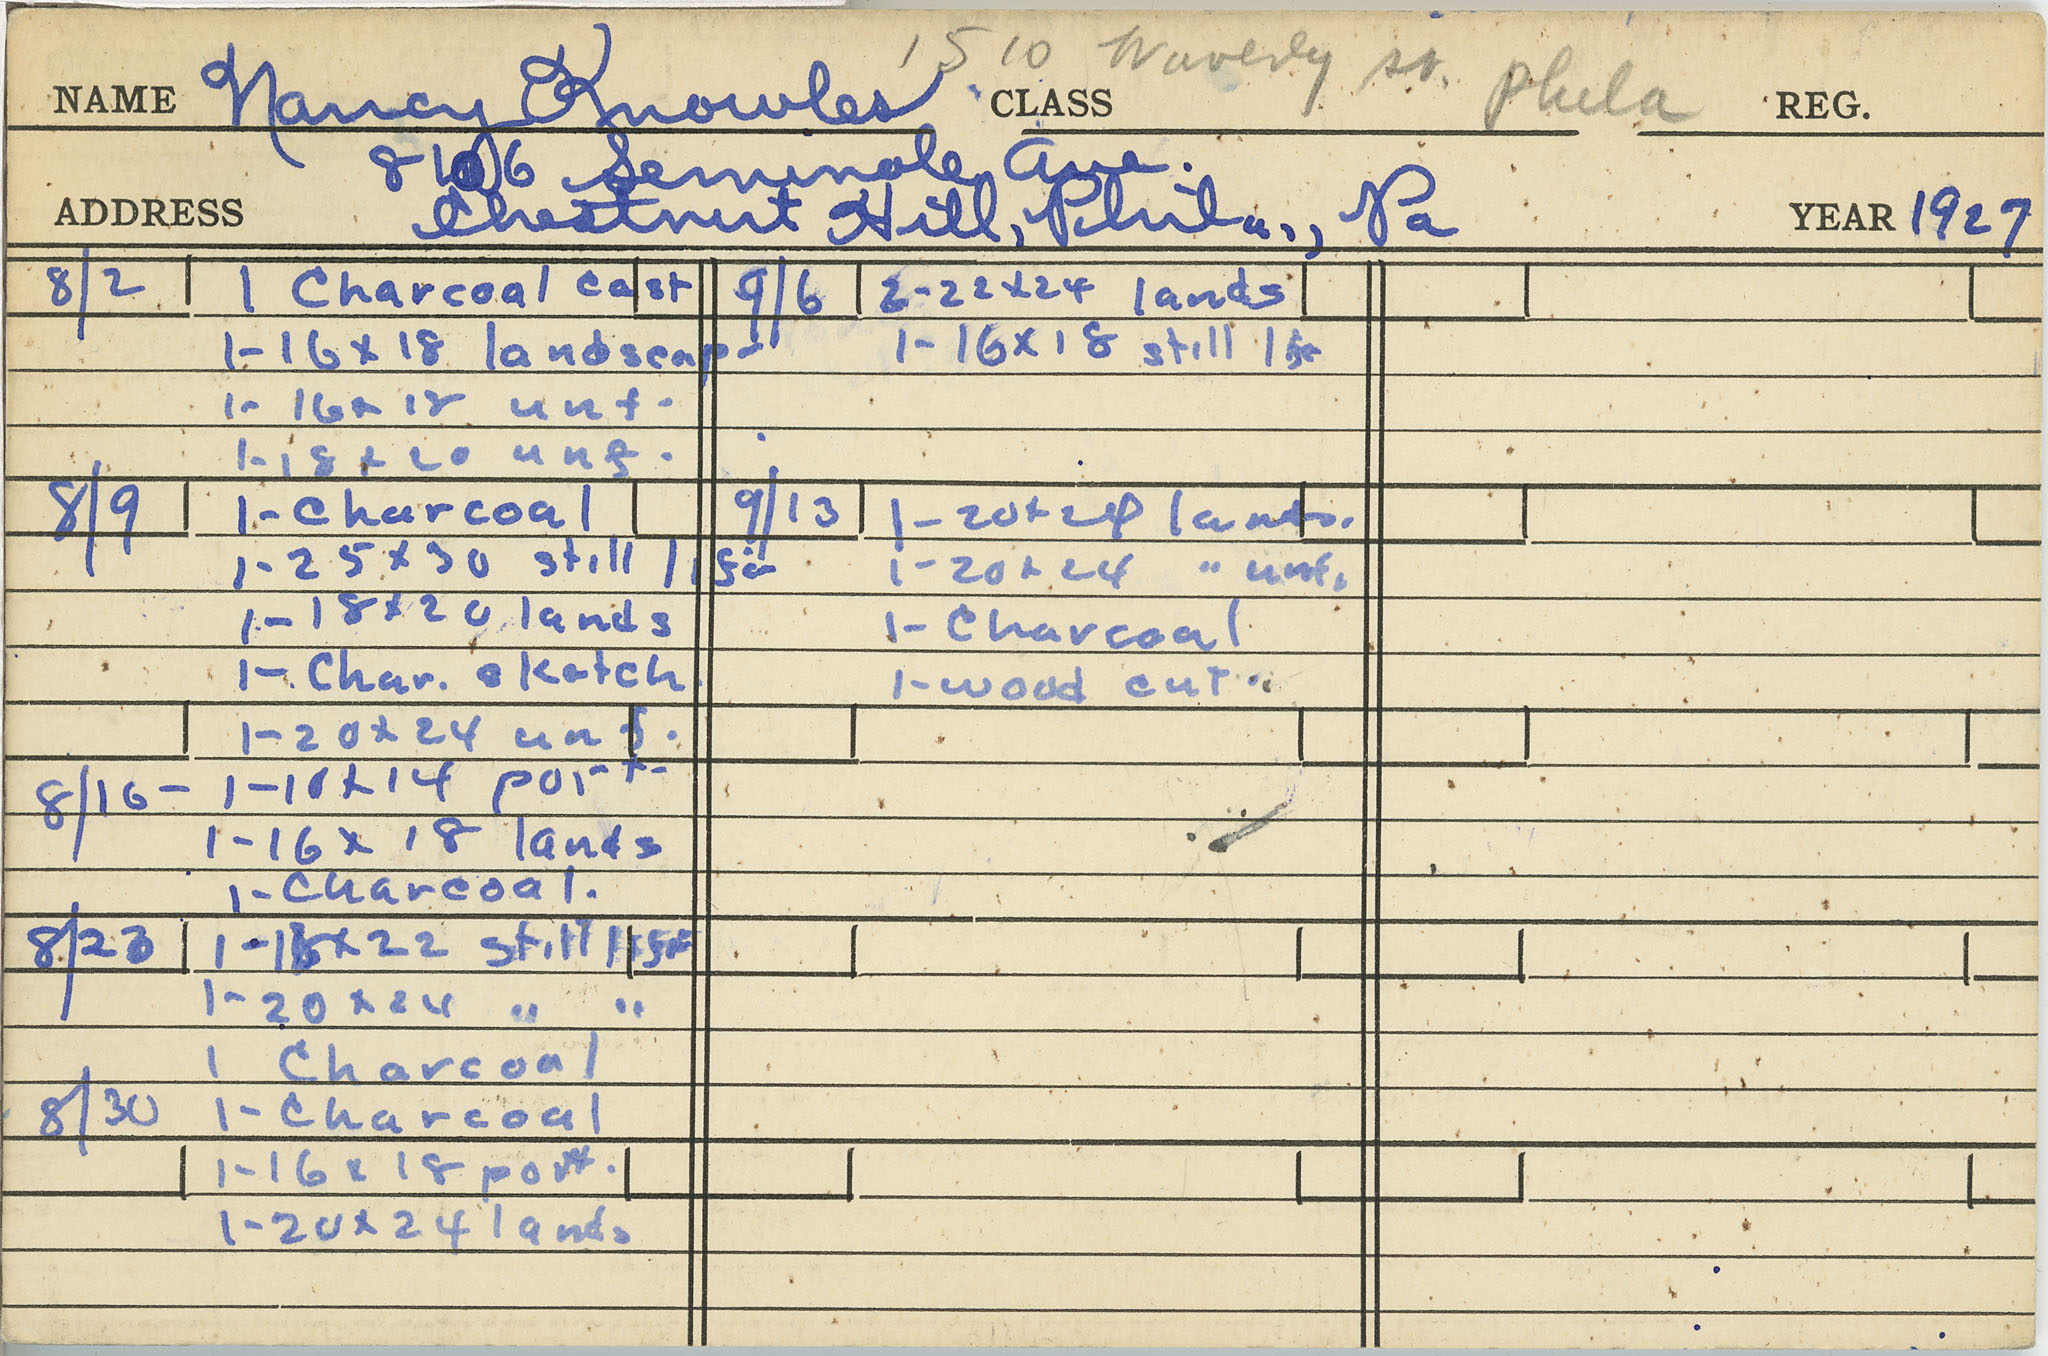 1510 Waverly st. Phila
NAME Nancy Knowles CLASS REG.
8106 Seminole Ave.
ADDRESS Chestnut Hill, Phila., Pa YEAR 1927
8/2 1 Charcoal cast
1-16x18 landscape
1-16x18 unf.
1-18x20 unf.
8/9 1-Charcoal
1-25x30 still life
1-18x20 lands
1-Char. sketch
1-20x24 unf.
8/16- 1-10x14 port-
1-16x18 lands
1-Charcoal.
8/23 1-18x22 still life
1-20x24 " "
1 Charcoal
8/30 1-Charcoal
1-16x18 port.
1-20x24 lands
9/6 2-22x24 lands
1-16x18 still life
9/13 1-20x24 lands.
1-20x24 " unf.
1-Charcoal
1-wood cut